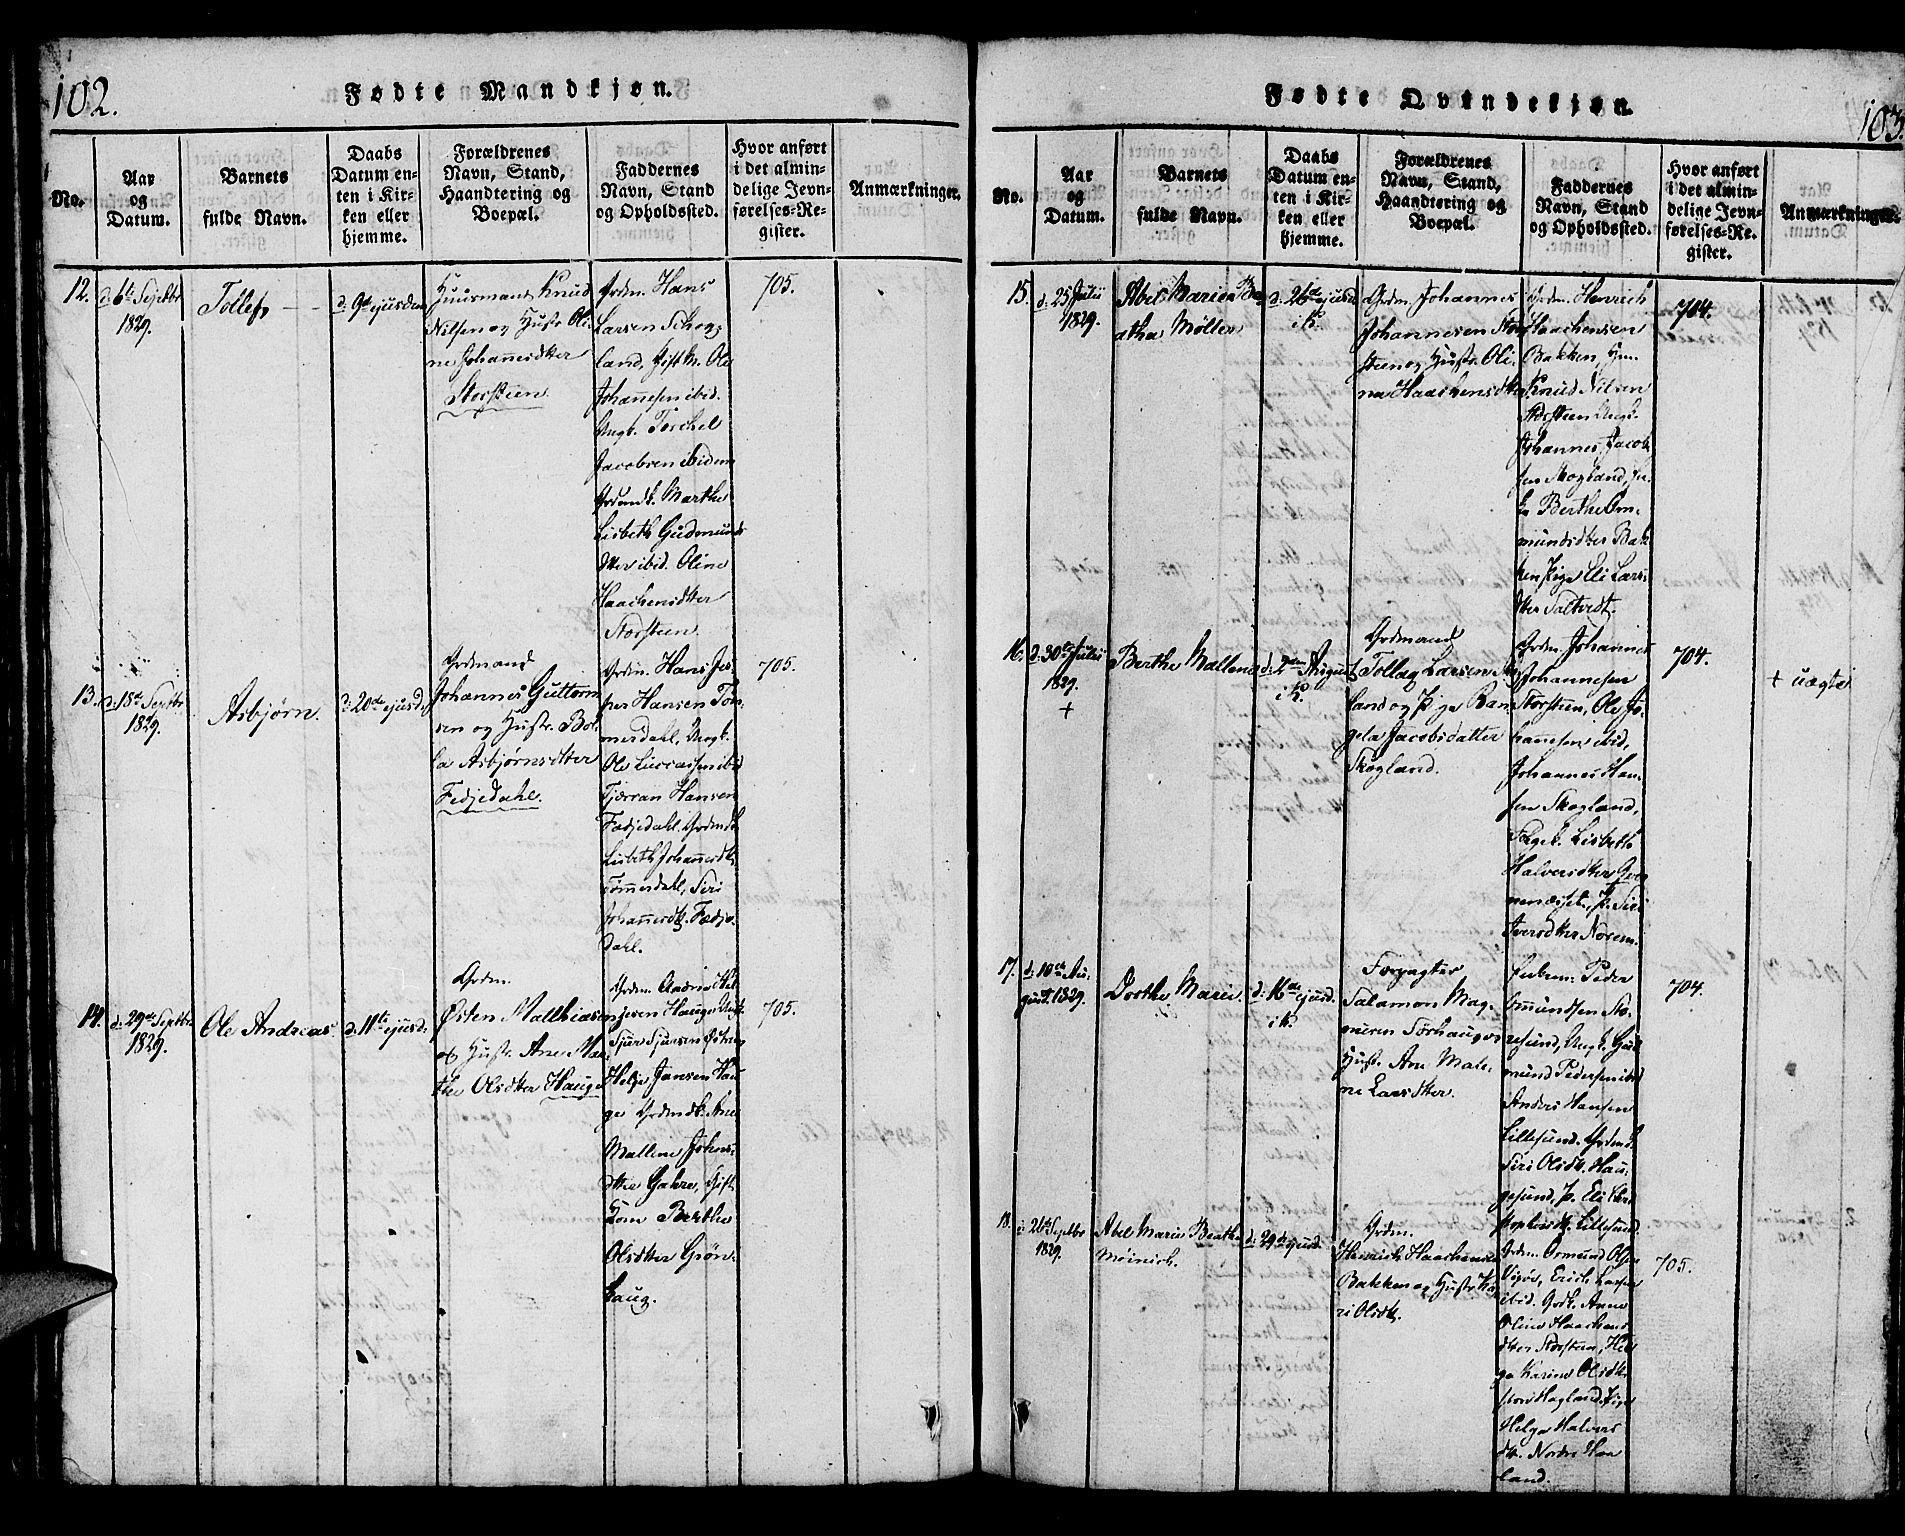 102.
Fødte Mandkjøn.
No.
Aar og Datum.
Barnets fulde Navn.
Daabs Datum enten i Kirken eller hjemme.
Forældrenes Navn, Stand, Haandtering og Boepæl.
Faddernes Navn, Stand og Opholdssted.
Hvor anført i det almindelige Jevnførelses-Register.
Anmærkninger.
12.
d: 6te Septbr
1829.
Tollef
d: 9de ejusdem
Huusmand Knud
Nilsen og Hustr. Oli
ne Johannesdtter
Storsteen
Grdm. Hans
Larsen Schog
land,
Ole
Johannesen ibid.
Ungk. Torchel
Jacobsen ibidem
Grdmdk. Marthe
Lisbeth Gudmunds
dtter ibid. Oline
Haachensdtter
Storsteen.
705.
13.
d: 18de Septbr
1829.
Asbjørn.
d: 20de ejusd.
Grdmand
Johannes Guttorm
sen og Hustr. Bol
la Asbjørnsdtter
Fedjedahl.
Grdm. Hans Jes
per Hansen Tøm
merdahl, Ungk.
Ole Lucassen ibid
Tjærran Hansen
Fædjedahl. Grdmdk.
Lisbeth Johannesdtr.
Tømmerdahl, Siri
Johannesdtr. Fædje
dahl.
705.
14.
d: 29de Septbr
1829.
Ole Andreas
d: 11te ejusd.
Grdm.
Østen Matthiasen
og Hustr. Ane Mar
the Olsdtter Hauge
Grdm.
Hauge Ungk.
Sjur Sjursen
Helje Jansen Hau
ge Grdmdk. Ane
Malline Johans
dtter Gahre, Gift
Kone Berthe
Olsdtter Grøn
haug.
705.
Fødte Qvindekjøn.
103.
No.
Aar og Datum.
Barnets fulde Navn.
Daabs Datum enten i Kirken eller hjemme.
Forældrenes Navn, Stand, Haandtering og Boepæl.
Faddernes Navn, Stand og Opholdssted.
Hvor anført i det almindelige Jevnførelses-Register.
Anmærkninger.
15.
d: 25 Julii
1829.
Abel Marien Be
atha Møller
d: 26de ejusd
i K.
Grdm. Johannes
Johannesen Stor
steen og Hustr. Oli
ne Haachensdtter
Grdm. Henrich
Haachensen
Bakken,
Knud Nilsen
Storsteen Ungk.
Johannes Jacob
sen Skogland,
Berthe Om
mundsdtter Bak
ken Pige Eli Lars
dtter Saltvedt.
704.
16.
d: 30te Julii
1829.
+
Berthe Mallene
d: 2den August
i K.
Grdmand
Tollag Larsen Skog
land og Pige Ran
gela Jacobsdatter
Skogland.
Grdm. Johannes
Johannesen
Storsteen, Ole Jo
hannesen ibid,
Johannes Han
sen Skogland,
Lisbeth
Halvorsdtter
P. Siri
Iversdtter Norem.
704.
+ uægte
17.
d: 10de Au
gust. 1829.
Dorthe Marie
d: 16de ejusd.
i K.
Forpagter
Salamon Mag
nesen Sørhaug og
Hustr. Ane Male
ne Larsdtter.
Peder
Ommundsen Sto
resund, Ungk. Gud
mund Pedersen ibid
Anders Hansen
Lillesund. Grdmdk.
Siri Olsdtr. Hau
gesund, P. Eli Chri
stophersdtr. Lillesund.
704.
18.
d: 26de Septbr
1829.
Abel Marie Beathe
Meinich.
d: 29de ejusd.
Grdm.
Heinrich Haachensen
Bakken og Hustr. Ka
ri Olsdtr.
Grdm. Ormund Olsen
Erich Larsen
ibid. Grdk. Anne
Oline Haachens
dtter Storsteen, Hel
ga Karine Olsdtr.
Hagland, Pige
Helga Halvors
dtr. Nordre Haa
land.
705.